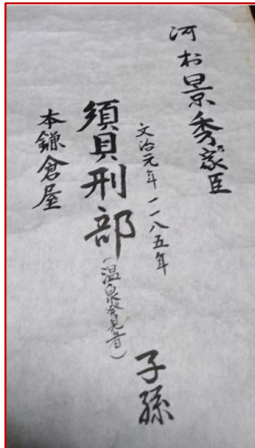 河村景秀家臣
文治元年一一八五年
須貝刑部(温泉発見者)
子孫
本鎌倉屋